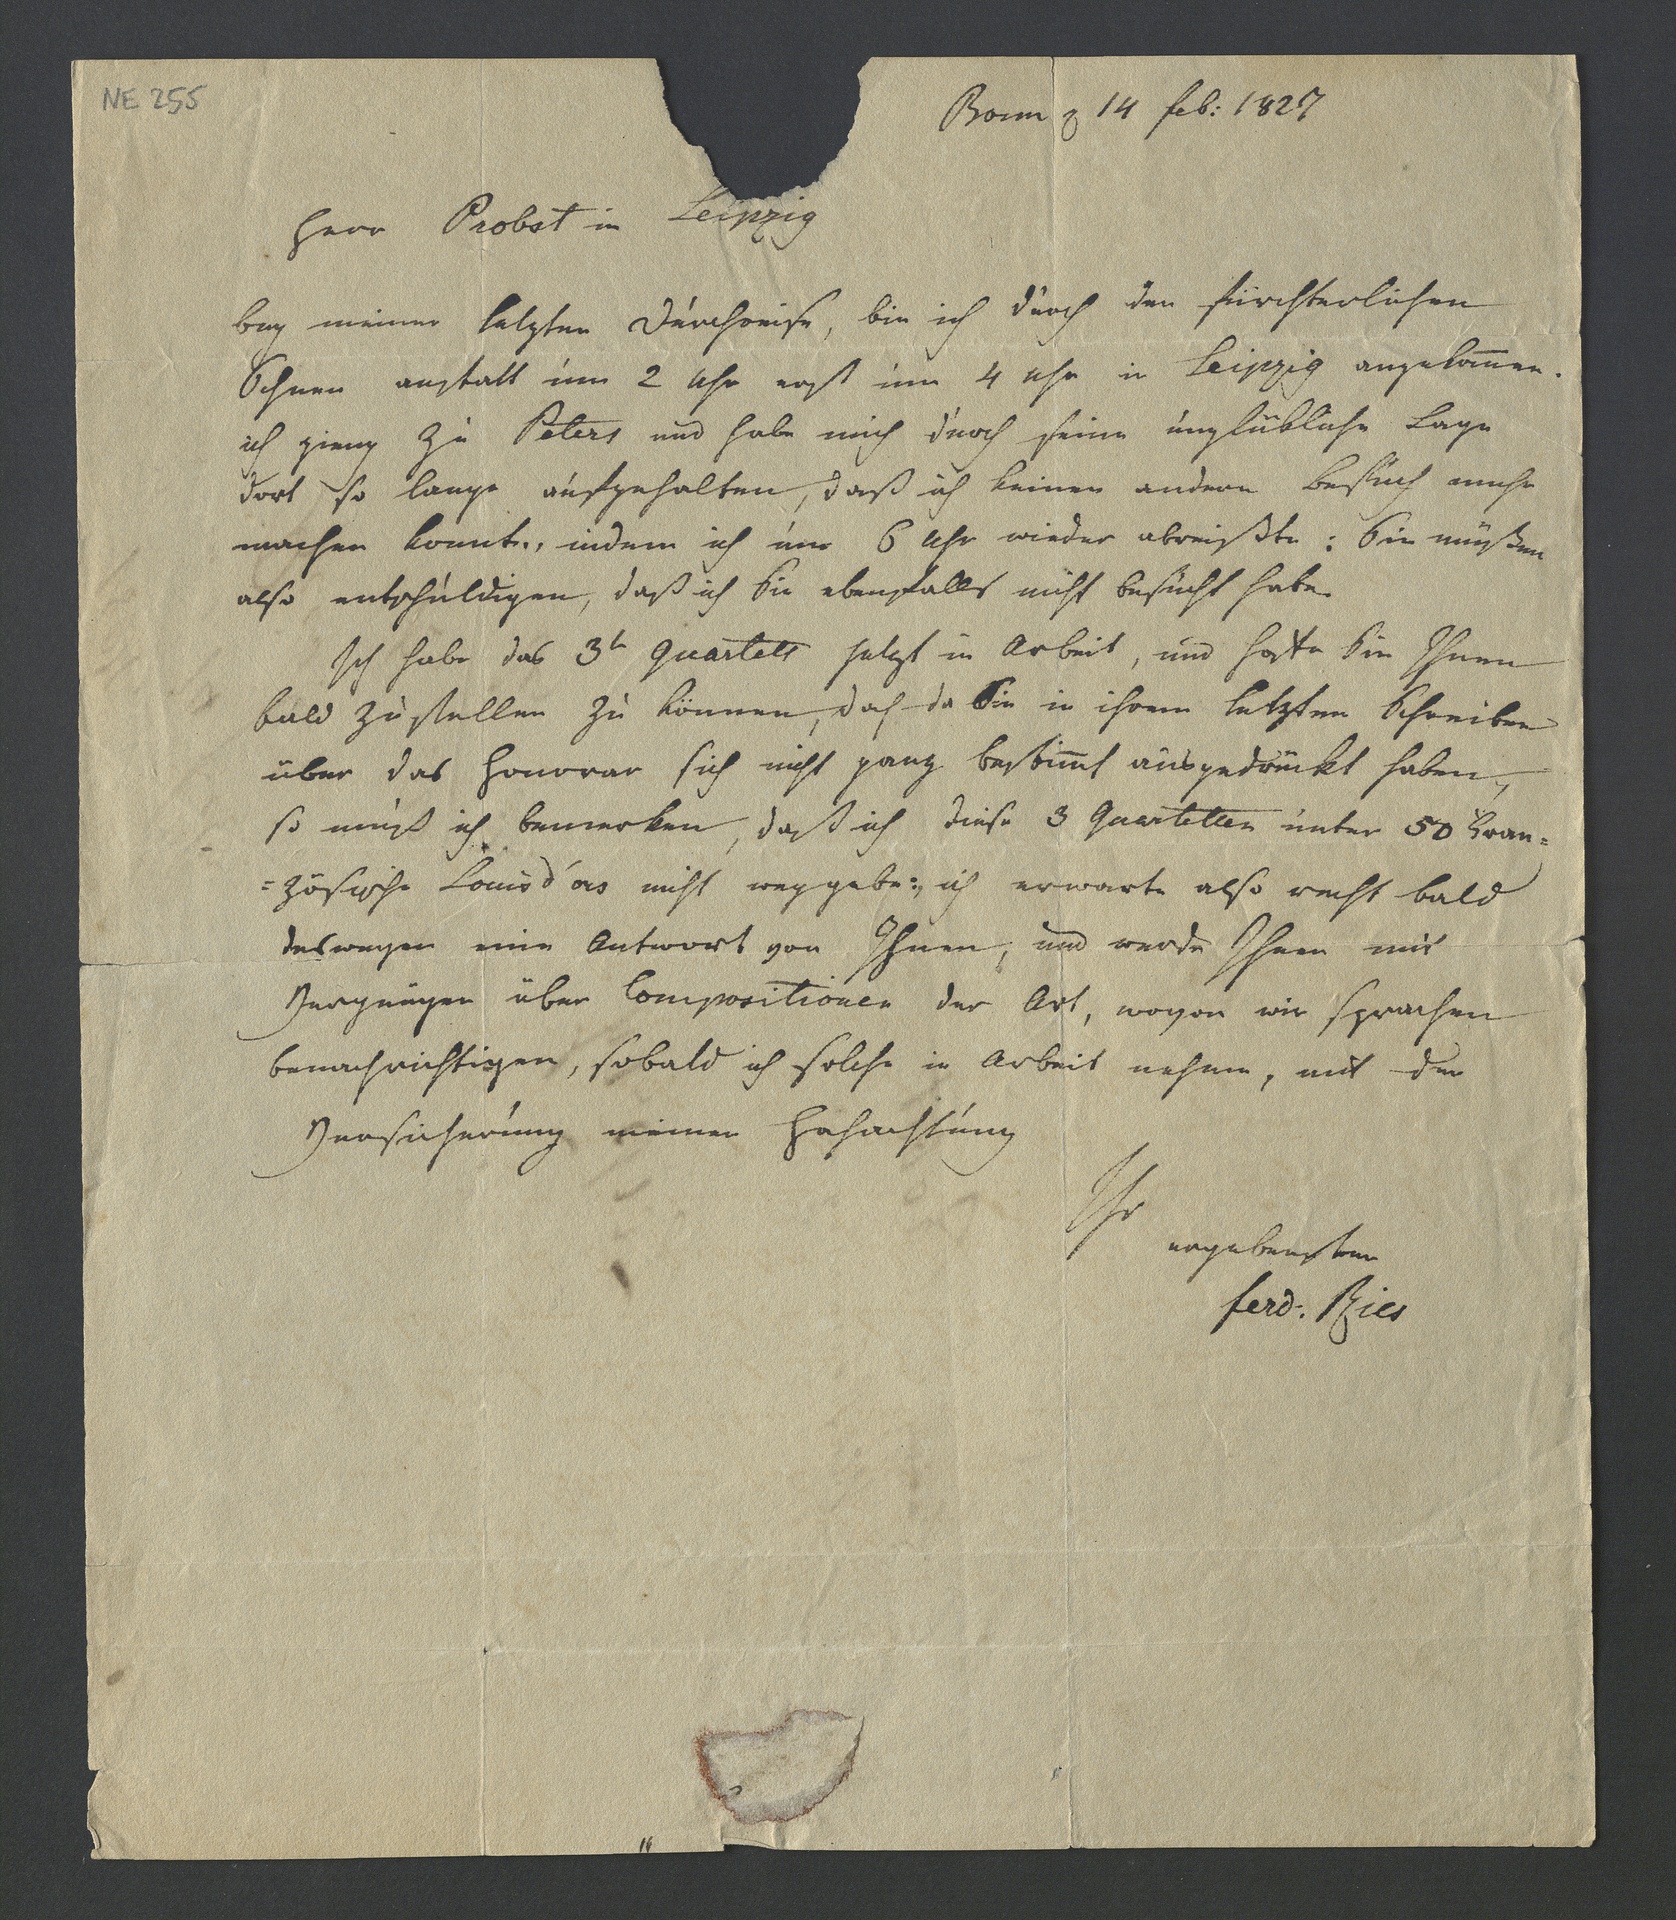 NE 255
Bonn 14 feb: 1827
Herr Probst in Leipzig
bey meiner letzten Durchreise, bin ich durch den fürchterlichen
Schnee anstatt um 2 Uhr erst um 4 Uhr in Leipzig angekom̅en.
ich gieng zu Peters und habe mich durch seine unglückliche Lage
dort so lange aufgehalten, daß ich keinen andern Besuch mehr
machen konnte, indem ich um 6 Uhr wieder abreißte: Sie müßen
also entschuldigen, daß ich Sie ebenfalls nicht besucht habe.
Ich habe das 3te Quartett jetzt in Arbeit, und hoffe Sie Ihnen
bald zustellen zu können, doch da Sie in ihrem letzten Schreiben
über das Honorar sich nicht ganz bestim̅t ausgedrückt haben,
so muß ich bemerken, daß ich diese 3 Quartetten unter 50 Fran=
=zösische Louisd'ors nicht weggebe: ich erwarte also recht bald
deswegen eine Antwort von Ihnen, und werde Ihnen mit
Vergnügen über Compositionen der Art, wovon wir sprachen
benachrichtigen, sobald ich solche in Arbeit nehme, mit der
Versicherung meiner Hochachtung
Ihr
ergebenster
ferd. Ries